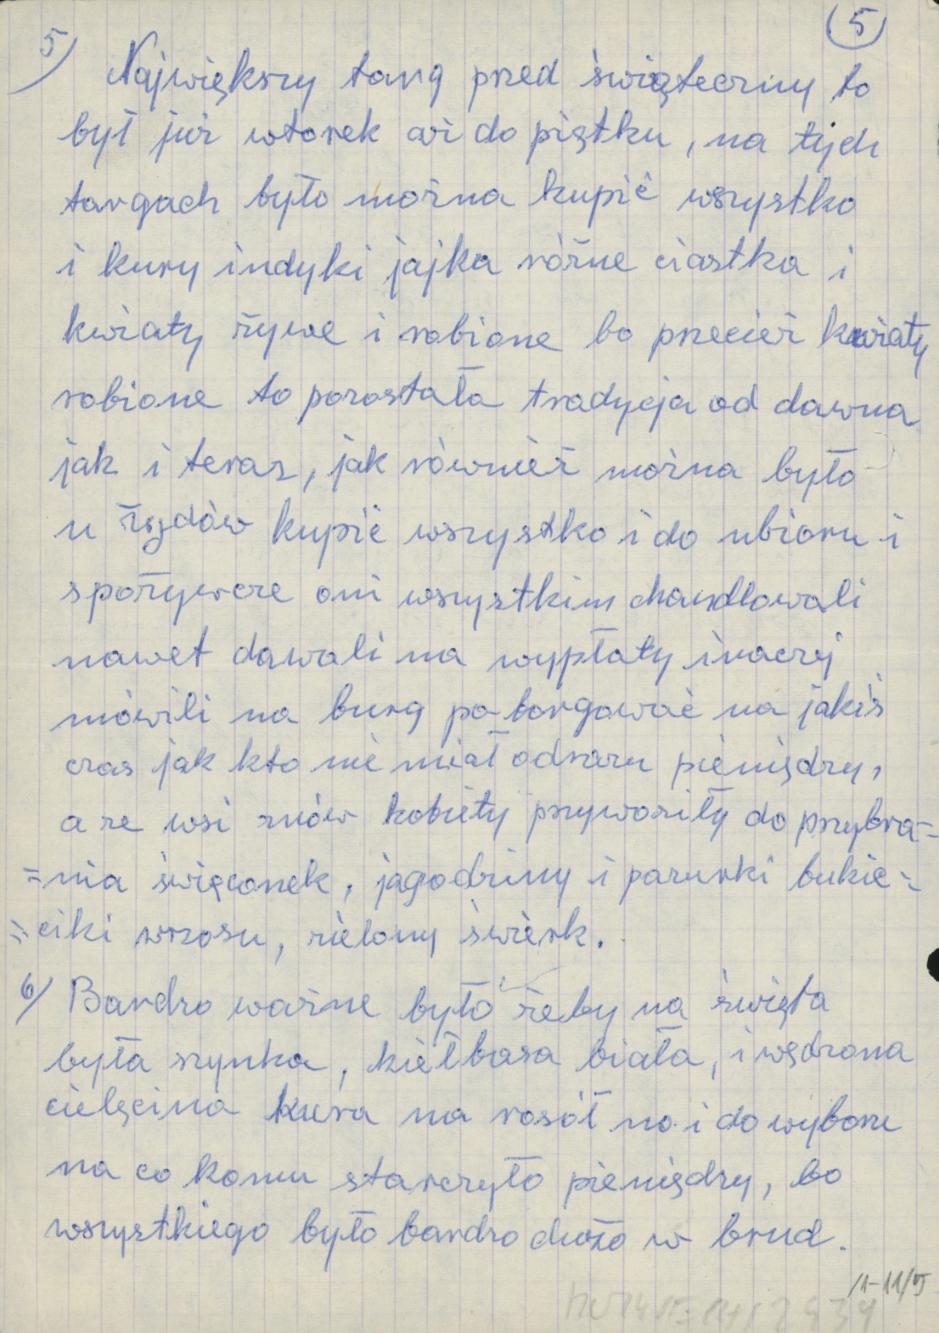 5
5)
Największy targ przed świąteczny to
był już wtorek aż do piątku, na tych
targach było można kupić wszystko
i kury indyki jajka różne ciastka i
kwiaty żywe i robione bo przecież kwiaty
robione to pozostała tradycja od dawna
jak i teraz, jak również można było
u Żydów kupić wszystko i do ubioru i
spożywcze oni wszystkim chandlowali
nawet dawali na wypłaty inaczej
mówili na burg po borgować na jakiś
czas jak kto nie miał odrazu pieniędzy,
a ze wsi znów kobiety przywoziły do przybra=
=nia święconek, jagodziny i pazurki bukie=
=ciki wrzosu, zielony świerk.
6) Bardzo ważne było żeby na święta
była szynka, kiełbasa biała, i wędzona
cielęcina kura na rosół no i do wyboru
na co komu starczyło pieniędzy, bo
wszystkiego było bardzo dużo w brud.